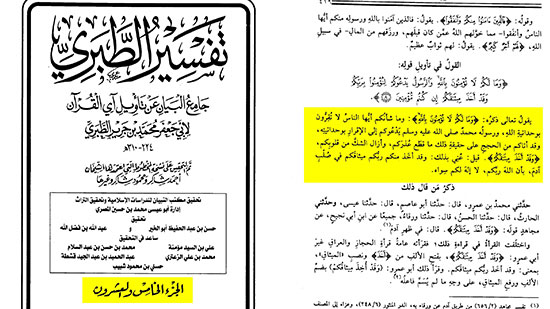 تفسير الطبري
جامع البيان عن تأويل آي القرآن
لأبي جعفر محمد بن جرير الطبري
٢٢٤ - ٣١٠هـ
تحقيق مكتب التبيان للدراسات الإسلامية وتحقيق التراث
حسن بن عبد الحفيظ أبو الخير
و
عبد الله بن فضل الله
ساعد في التحقيق
علي بن السيد مؤمنة
محمد بن حسن بن عبد السلام
محمد بن علي
عبد الحميد بن عبد الجيد
حسني بن محمود شبيب
الجزء الخامس والعشرون
وقوله: ﴿فَالَّذِينَ آمَنُوا مِنكُمْ وَأَنفَقُوا﴾. يقول: فالذين آمنوا بالله ورسوله منكم أيها
الناس وأنفقوا- مما خولهم الله عمن كان قبلهم، ورزقهم من المال- في سبيل
الله، ﴿لَهُمْ أَجْرٌ كَبِيرٌ﴾. يقول: لهم ثواب عظيم.
القول في تأويل قوله:
﴿وَمَا لَكُمْ لَا تُؤْمِنُونَ بِاللَّهِ وَالرَّسُولُ يَدْعُوكُمْ لِتُؤْمِنُوا بِرَبِّكُمْ
وَقَدْ أَخَذَ مِيثَاقَكُمْ إِن كُنتُم مُّؤْمِنِينَ﴾
يقول تعالى ذكره: ﴿وَمَا لَكُمْ لَا تُؤْمِنُونَ بِاللَّهِ﴾: وما شأنكم أيها الناس لا تُقِرُّون
بوحدانية الله، ورسوله محمد صلى الله عليه وسلم يدعوكم إلى الإقرار بوحدانيته،
وقد أتاكم من الحجج على حقيقة ذلك ما قطع عذركم، وأزال الشك من قلوبكم،
﴿وَقَدْ أَخَذَ مِيثَاقَكُمْ﴾. قيل: عُنِي بذلك: وقد أخذ منكم ربكم ميثاقكم في صلب
آدم، بأن الله ربكم، لا إله لكم سواه.
ذكر من قال ذلك
حدثني محمد بن عمرو، قال: حدثنا أبو عاصم، قال: حدثنا عيسى، وحدثني
الحارث، قال: حدثنا الحسن، قال: حدثنا ورقاء، جميعًا عن ابن أبي نجيح، عن
مجاهد قوله: ﴿وَقَدْ أَخَذَ مِيثَاقَكُمْ﴾. قال: في ظهر آدم.
واختلفت القرأة في قراءة ذلك؛ فقرأته عامة قرأة الحجاز والعراق غير
أبي عمرو: ﴿وَقَدْ أَخَذَ مِيثَاقَكُمْ﴾. بفتح الألف من «أخذ» ونصب «الميثاق»،
بمعنى: وقد أخذ ربكم ميثاقكم. وقرأ ذلك أبو عمرو: (وَقَدْ أُخِذَ مِيثَاقُكُمْ) بضم
الألف ورفع الميثاق، على وجه ما لم يسم فاعله